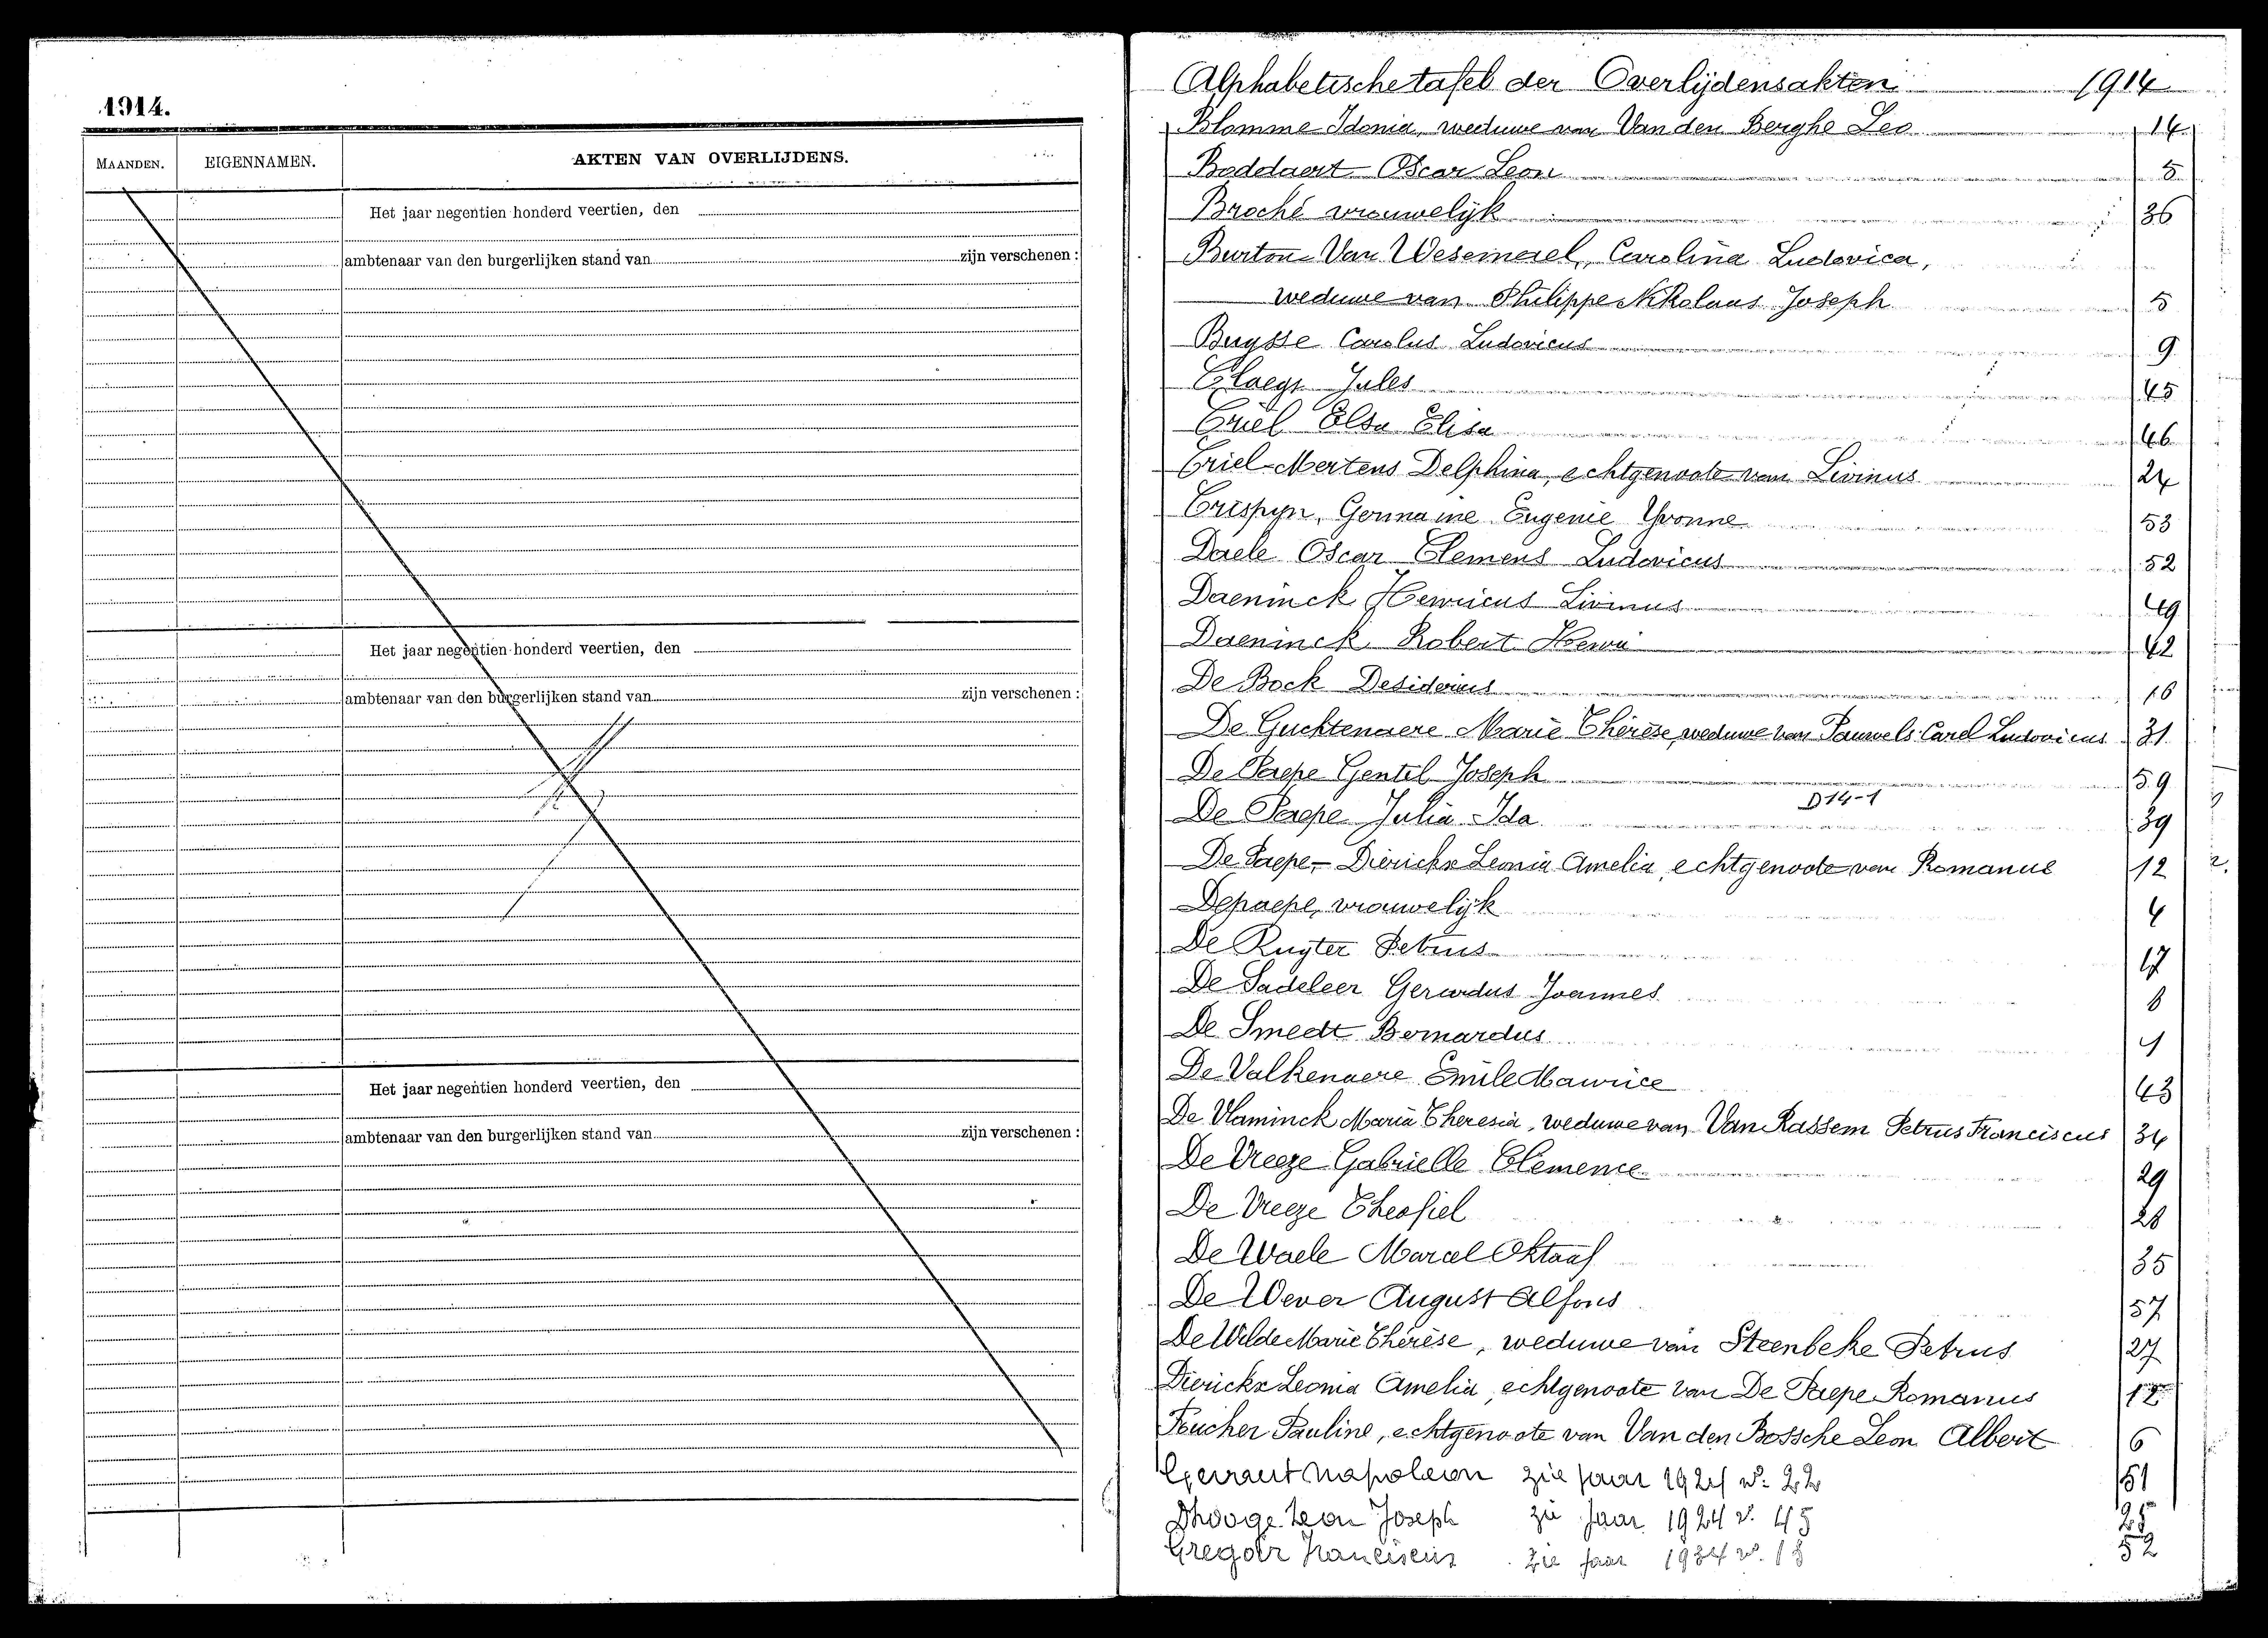 1914.
MAANDEN. EIGENNAMEN. AKTEN VAN OVERLIJDENS.
Het jaar negentien honderd veertien, den
ambtenaar van den burgerlijken stand van zijn verschenen :
Het jaar negentien honderd veertien, den
ambtenaar van den burgerlijken stand van zijn verschenen :
Het jaar negentien honderd veertien, den
ambtenaar van den burgerlijken stand van zijn verschenen :
Alphabetische tafel der Overlijdensakten 1914
Blomme Idonia, weduwe van Van den Berghe Leo 14
Boddaert Oscar Leon 5
Broché vrouwelijk 36
Burton-Van Wesemael, Carolina Ludovica,
weduwe van Philippe Nikolaus Joseph 5
Buysse Carolus Ludovicus 9
Claeys Jules 45
Criel Elsa Elisa 46
Criel-Mertens Delphina, echtgenoote van Livinus 24
Crispyn, Germaine Eugenie Yvonne 53
Daele Oscar Clemens Ludovicus 52
Daeninck Henricus Livinus 49
Daeninck Robert Henri 42
De Bock Desiderius 16
De Guchtenaere Marie Thérèse, weduwe van Pauwels Carel Ludovicus 31
De Paepe Gentil Joseph 59
D14-1
De Paepe Julia Ida 39
De Paepe-Dierickx Leonia Amelia, echtgenoote van Romanus 12
Depaepe, vrouwelijk 4
De Ruyter Petrus 17
De Sadeleer Gerardus Joannes 8
De Smedt Bernardus
De Valkenaere Emile Maurice 43
De Vlaminck Maria Theresia, weduwe van Van Rassem Petrus Franciscus 34
De Vreeze Gabrielle Clemence 29
De Vreeze Theofiel 28
De Waele Marcel Oktaaf 35
De Wever August Alfons 57
De Wilde Marie Thérèse, weduwe van Steenbeke Petrus 27
Dierickx Leonia Amelia, echtgenoote van De Paepe Romanus 12
Foucher Pauline, echtgenoote van Van den Bossche Leon Albert 6
Napoleon zie jaar 1921 n°: 22 51
Dhooge Leon Joseph zie Jaar 1924 n°. 45 25
Gregoir Franciscus zie jaar 1934 n°. 18 52